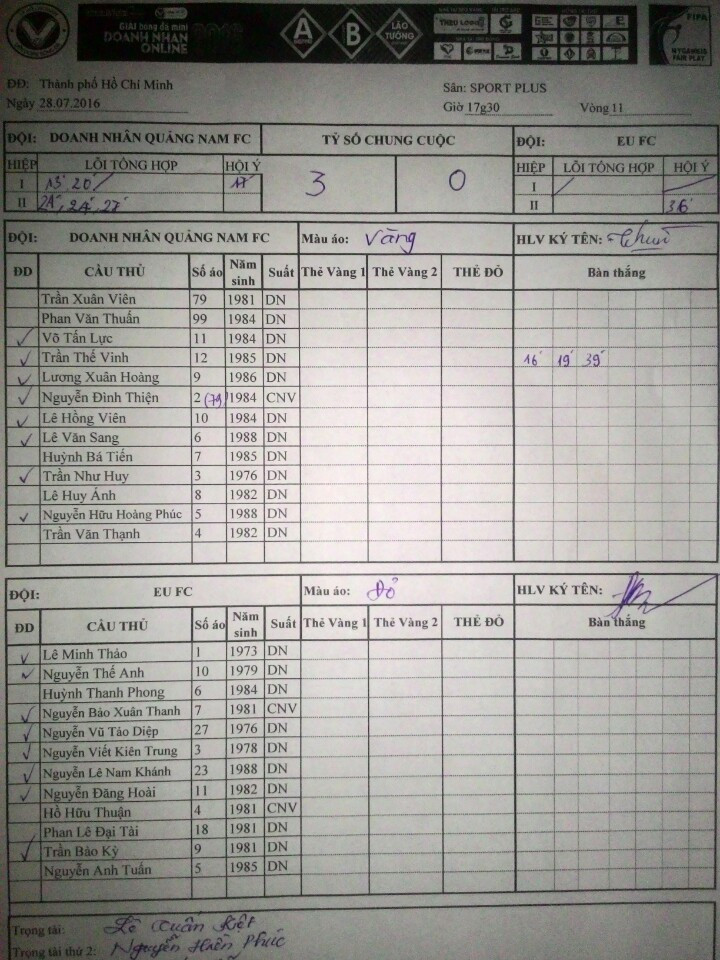 GIẢI bóng đá mini
DOANH NHÂN
ONLINE
A
B
LÃO
TƯỚNG
FIFA
MY GAME IS
FAIR PLAY
ĐĐ: Thành phố Hồ Chí Minh Sân: SPORT PLUS
Ngày 28.07.2016 Giờ 17g30 Vòng 11
ĐỘI: DOANH NHÂN QUẢNG NAM FC TỶ SỐ CHUNG CUỘC ĐỘI: EU FC
HIỆP LỖI TỔNG HỢP HỘI Ý 3 0 HIỆP LỖI TỔNG HỢP HỘI Ý
I 13' 20' 17' I
II 21', 24', 27' II 36'
ĐỘI: DOANH NHÂN QUẢNG NAM FC Màu áo: Vàng HLV KÝ TÊN:
ĐD CẦU THỦ Số áo Năm sinh Suất Thẻ Vàng 1 Thẻ Vàng 2 THẺ ĐỎ Bàn thắng
Trần Xuân Viên 79 1981 DN
Phan Văn Thuấn 99 1984 DN
✓ Võ Tấn Lực 11 1984 DN
✓ Trần Thế Vinh 12 1985 DN 16' 19' 39'
✓ Lương Xuân Hoàng 9 1986 DN
✓ Nguyễn Đình Thiện 2 (79) 1984 CNV
✓ Lê Hồng Viên 10 1984 DN
✓ Lê Văn Sang 6 1988 DN
Huỳnh Bá Tiến 7 1985 DN
✓ Trần Như Huy 3 1976 DN
Lê Huy Ánh 8 1982 DN
✓ Nguyễn Hữu Hoàng Phúc 5 1988 DN
Trần Văn Thạnh 4 1982 DN
ĐỘI: EU FC Màu áo: Đỏ HLV KÝ TÊN:
ĐD CẦU THỦ Số áo Năm sinh Suất Thẻ Vàng 1 Thẻ Vàng 2 THẺ ĐỎ Bàn thắng
✓ Lê Minh Thảo 1 1973 DN
✓ Nguyễn Thế Anh 10 1979 DN
Huỳnh Thanh Phong 6 1984 DN
✓ Nguyễn Bảo Xuân Thanh 7 1981 CNV
✓ Nguyễn Vũ Tảo Diệp 27 1976 DN
✓ Nguyễn Viết Kiên Trung 3 1978 DN
✓ Nguyễn Lê Nam Khánh 23 1988 DN
✓ Nguyễn Đăng Hoài 11 1982 DN
Hồ Hữu Thuận 4 1981 CNV
Phan Lê Đại Tài 18 1981 DN
✓ Trần Bảo Kỳ 9 1981 DN
Nguyễn Anh Tuấn 5 1985 DN
Trọng tài: Lê Xuân Kiệt
Trọng tài thứ 2: Nguyễn Hiền Phúc